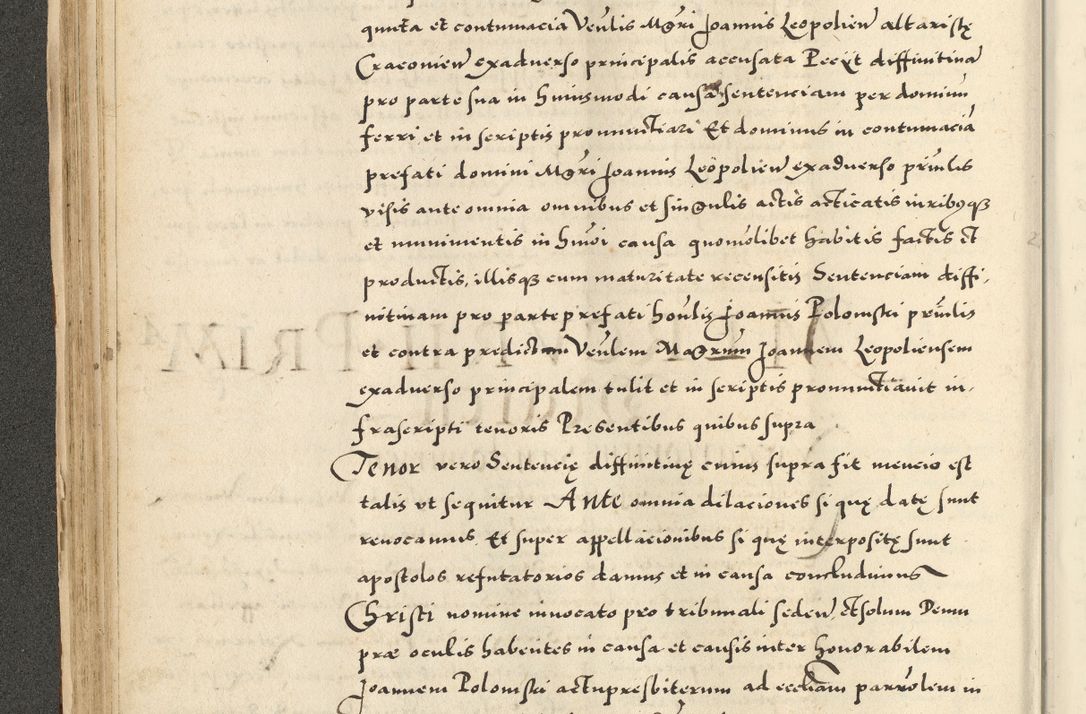 quinta et contumacia Veńlis Mgri Joannis Leopolień altaristę
Cracovień exadverso principalis accusata Peciit diffinitivā
pro parte sua in huiusmodi causa sentenciam per dominū
ferri et in scriptis pronunctiari Et dominus in contumaciā
prefati domini Mgri Joannis Leopolień exadverso prińlis
visis ante omnia omnibus et singulis actis acticatis iuribusque
et munimentis in hmoi causa quomolibet habitis factis et
productis, illisque cum maturitate recensitis Sentenciam diffi,
nitivam pro parte prefati hońlis Joannis Polomski prińlis
et contra predictum Veńlem Magrum Joannem Leopoliensem
exadverso principalem tulit et in scriptis pronunctiavit in,
frascripti tenoris Presentibus quibus supra
Tenor vero Sentencię diffinitivę cuius supra fit mencio est
talis ut sequitur Ante omnia dilaciones si quę datę sunt
revocamus, Et super appellacionibus si quę interpositę sunt
apostolos refutatorios damus et in causa concludimus
Christi nomine invocato pro tribunali sedeń, et solum Deum
præ oculis habentes in causa et causis inter honorabilem
Joannem Polomski actupresbiterum ad eccliam parrolem in